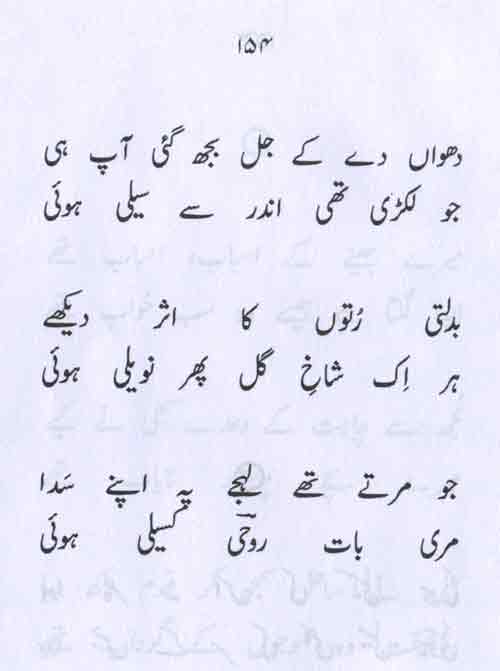 ۱۵۴
دھواں دے کے جل بجھ گئی آپ ہی
جو لکڑی تھی اندر سے سیلی ہوئی
بدلتی رُتوں کا اثر دیکھیے
ہر اِک شاخِ گل پھر نویلی ہوئی
جو مرتے تھے لہجے پہ اپنے سَدا
مری بات روحیؔ کسیلی ہوئی